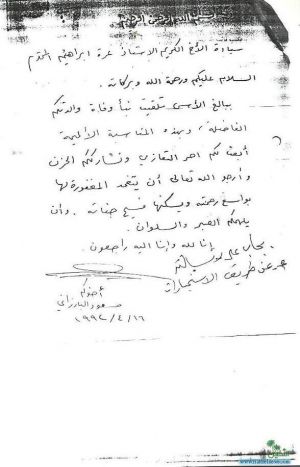 بسم الله الرحمن الرحيم
سيادة الأخ الكريم الاستاذ عزة ابراهيم المحترم
السلام عليكم ورحمة الله وبركاته
ببالغ الأسى تلقيت نبأ وفاة والدتكم
الفاضلة، وبهذه المناسبة الأليمة
أبعث لكم احر التعازي ونشارككم الحزن
وأرجو الله تعالى أن يتغمد المغفورة لها
بواسع رحمته ويسكنها فسيح جناته. وأن
يلهمكم الصبر والسلوان.
إنا لله وإنا اليه راجعون
عن طريق الاستخبارات
أخوكم
مسعود البارزاني
١٩٩٢/٤/١٦